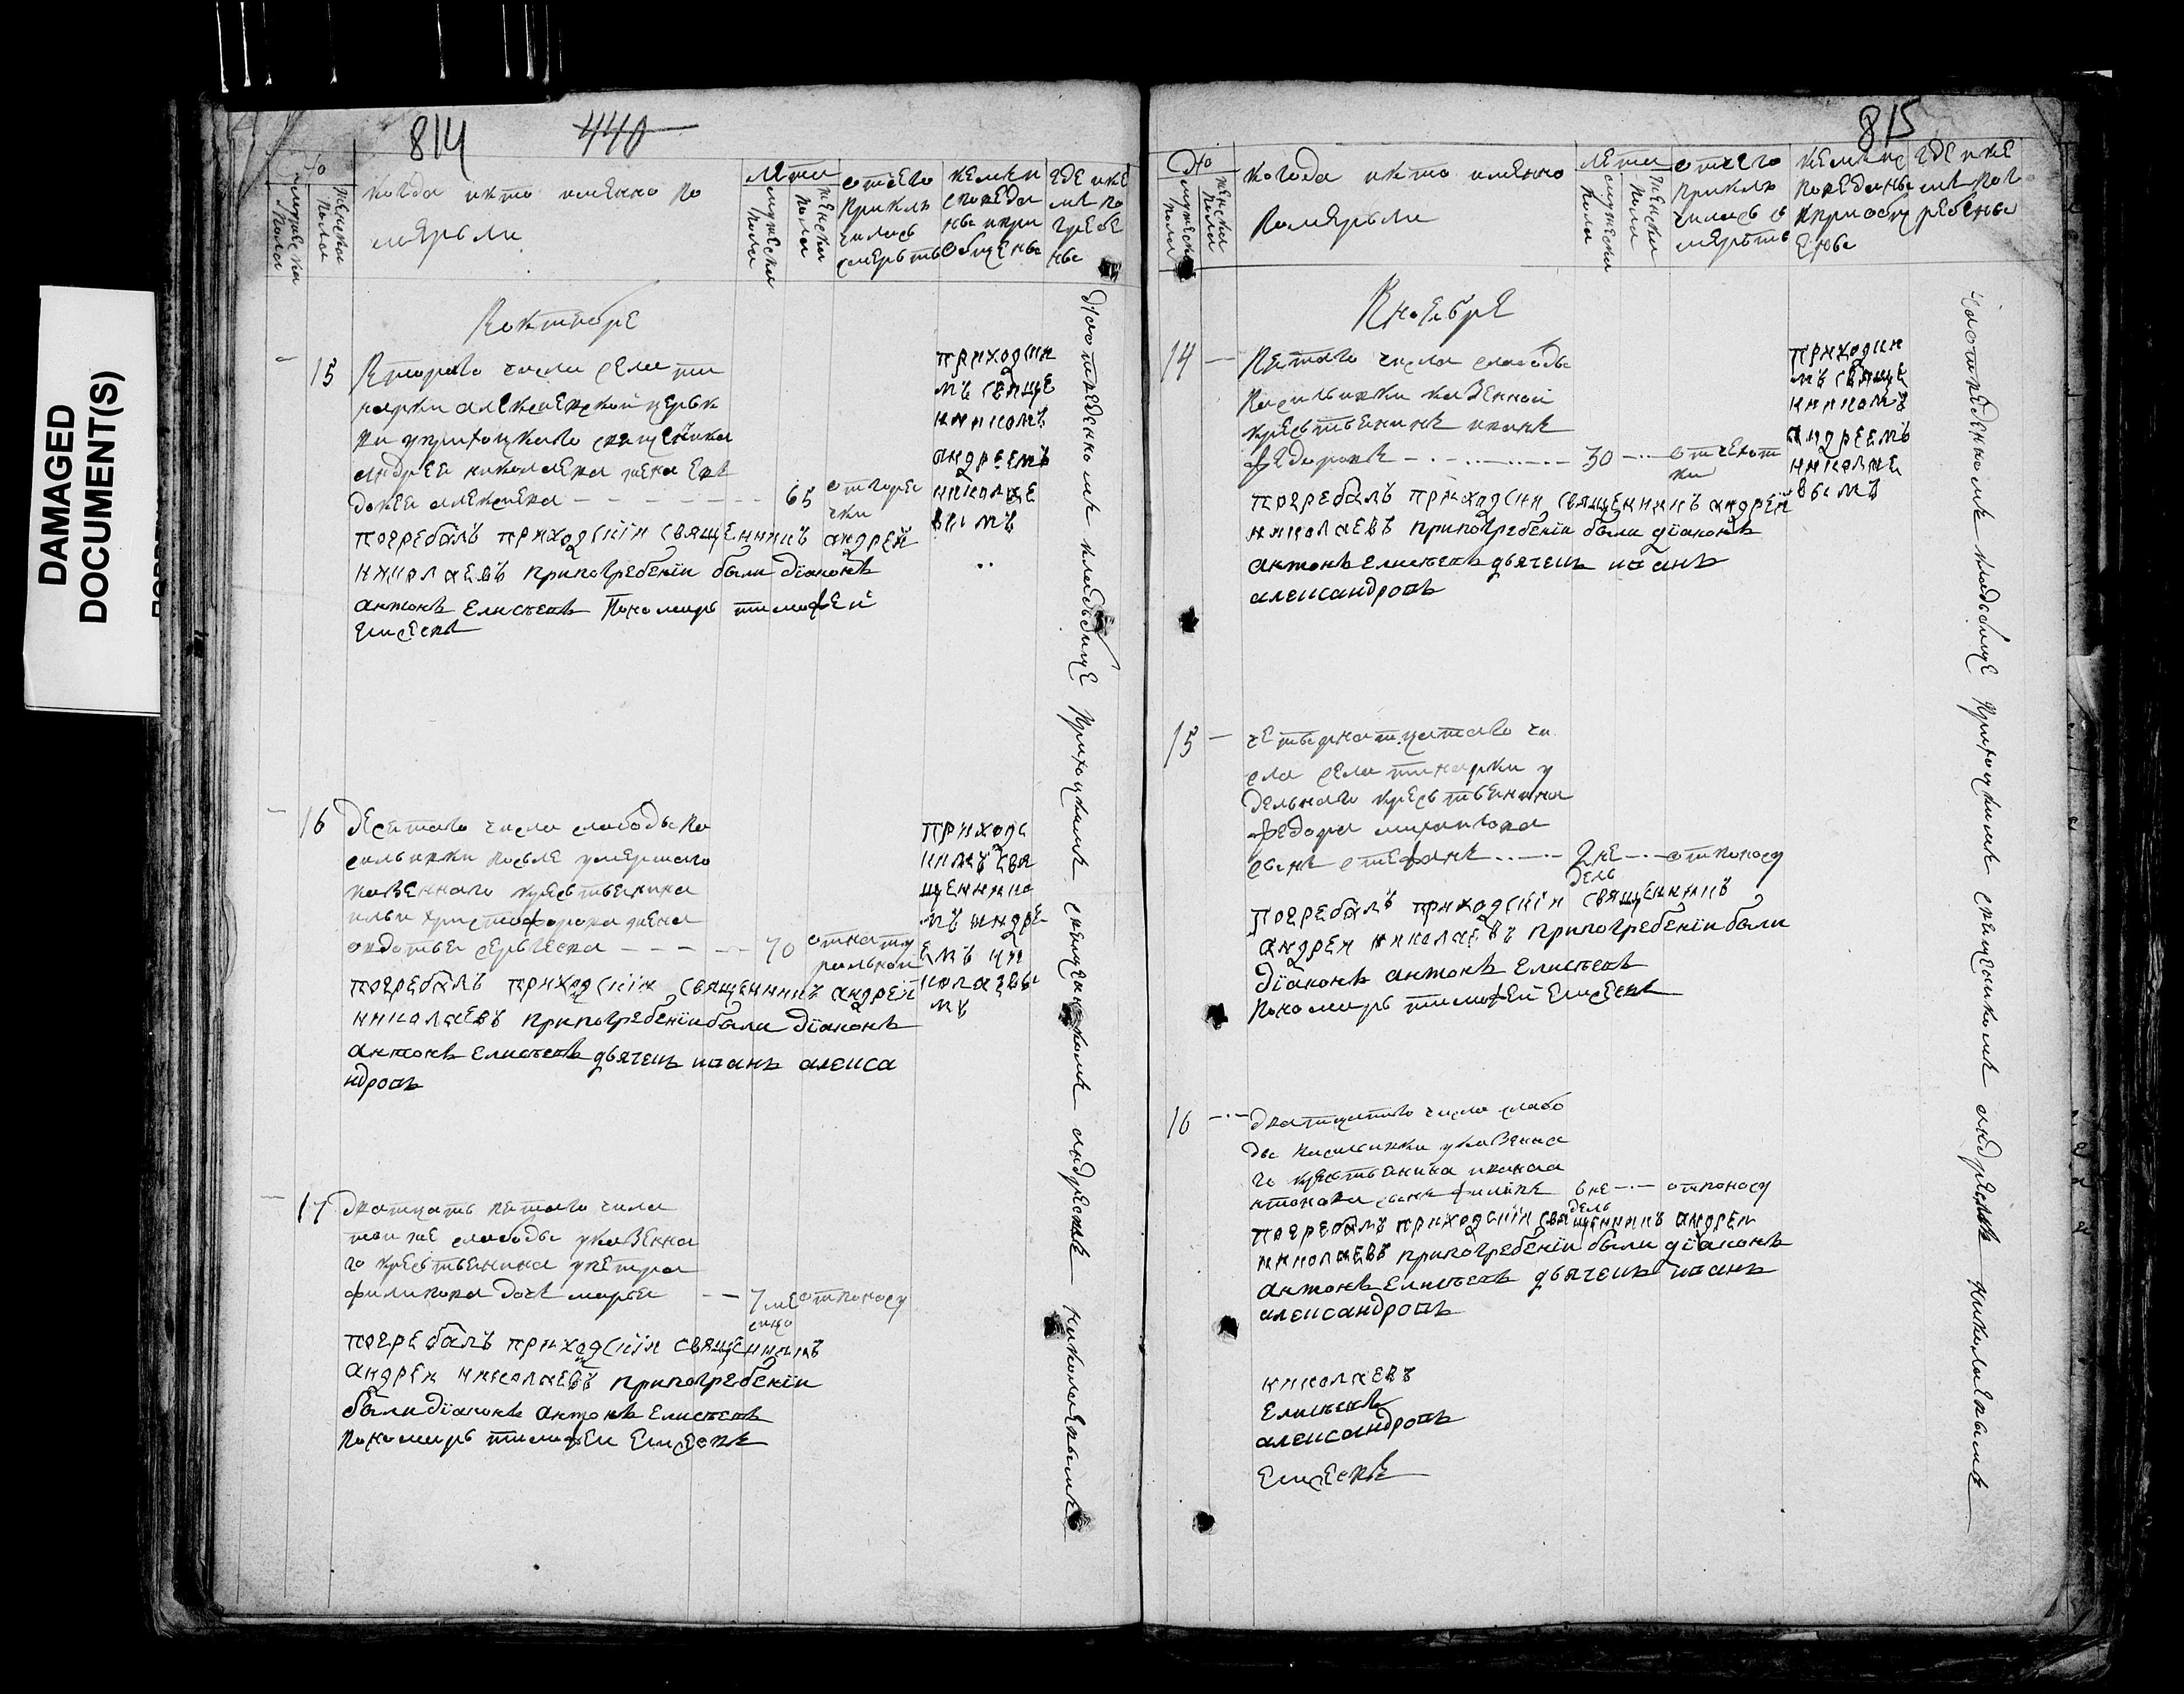 DAMAGED
DOCUMENT(S)
814
440
№
мужеска пола
женска пола
когда и кто именно по
мерьли
лета
мужеска пола
женска пола
отчего
приклю
чилась
смерьть
кемъ и
споведа
ны и при
общены
где и ке
мъ по
гребе
ны
Воктебре
15
Второго числа села ти
нарки алексеевской церьк
ви у прихоцкаго свещенника
андрея николаева жена ев
докея алексеева
65
от горе
чки
приходцки
мъ свяще
нникомъ
андреемъ
николае
вымъ
погребалъ приходскiи священникъ андрей
николаевъ при погребенiи были дiаконъ
антонъ елисеевъ пономарь тимофей
елисеевъ
16
десетаго числа слободы ва
сильевки после умершаго
казеннаго кресьтьенина
ильи христофорова жена
овдотьея серьгеева
70
от нату
ральной
приходс
кимъ свя
щеннико
мъ андре
емъ ни
колаевы
мъ
погребалъ приходскiи священникъ андрей
николаевъ при погребенiи были дiаконъ
антонъ елисеевъ дьячекъ иванъ алекса
ндровъ
17
дватцать петаго числа
той же слободы у казенна
го кресьтьенина у петра
филипова дочь марья
7 ме
сицо
от поносу
погребалъ приходскiи священникъ
андреи николаевъ при погребенiи
были дiаконъ антонъ елисеевъ
пономарь тимофеи елисеевъ
на отведеномъ кладьбище прихоцкимъ свещеникомъ андреемъ николаевымъ
815
№
мужеска пола
женска пола
когода и кто именно
померьли
лета
мужеска пола
женска пола
отчего
приклю
чилась с
мерьть
кемъ ис
поведаны
и приобщ
ены
где и ке
мъ пог
ребены
Вноебре
14
Петаго числа слободы
Васильевки казенной
кресьтьенинъ иванъ
федоровъ
30
от чехот
ки
приходцки
мъ свяще
нникомъ
андреемъ
николае
вымъ
погребалъ приходскiи священникъ андрей
николаевъ при погребенiи были дiаконъ
антонъ елисеевъ дьячекъ иванъ
александровъ
15
четырнатцатаго чи
сла села тинарки у
дельнаго кресьтьенина
федора
сынъ стефанъ
2 не
дель
от поносу
погребалъ приходскiи священникъ
андреи николаевъ при погребенiи были
дiаконъ антонъ елисеевъ
пономарь тимофей елисеевъ
16
дватцатаго числа слобо
ды васильевки у казенна
го кресьтьенина ивана а
нтонова сынъ филипъ
6 не
дель
от поносу
погребалъ приходскiи священникъ андреи
николаевъ при погребенiи были дiаконъ
антонъ елисеевъ дьячекъ иванъ
александровъ
николаевъ
елисеевъ
александровъ
елисеевъ
на отведеномъ кладьбище прихоцкимъ свещеникомъ андреемъ николаевымъ